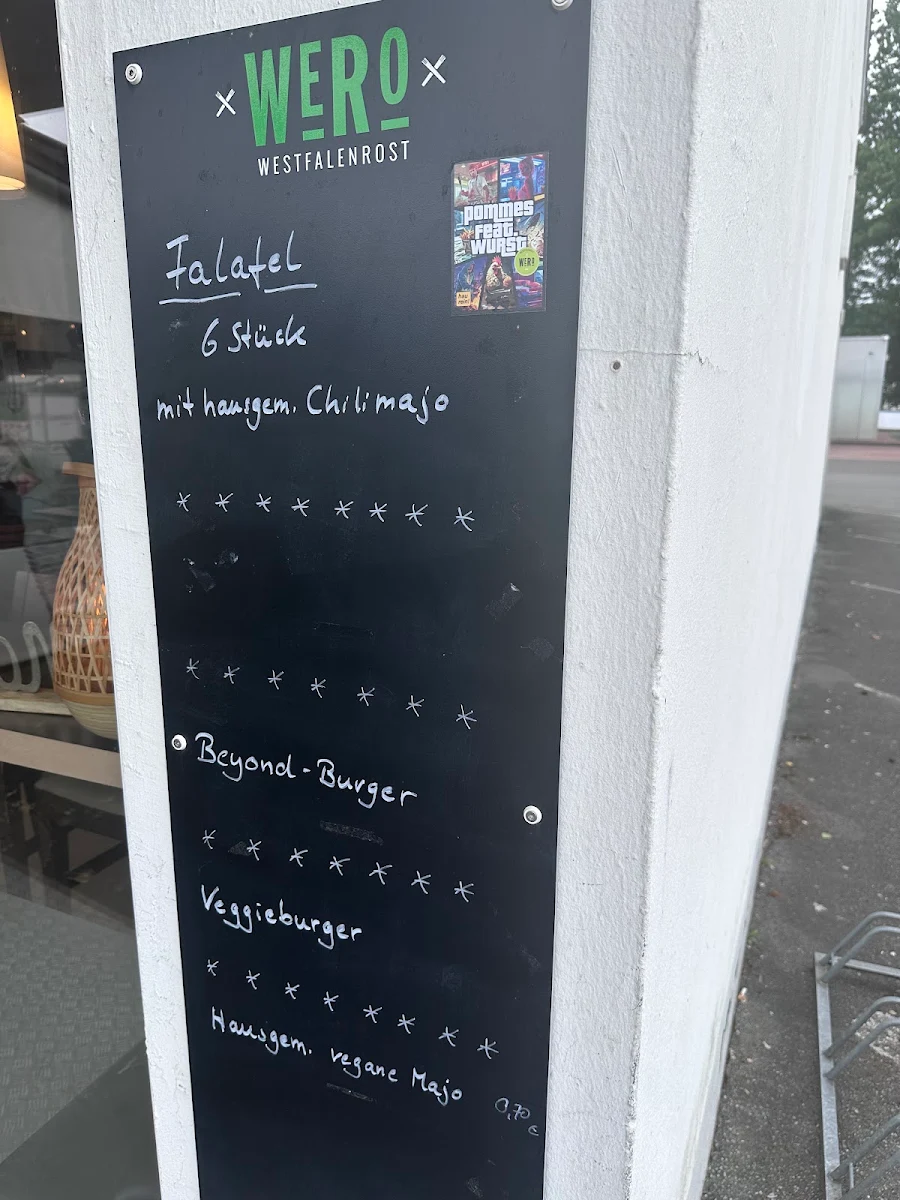 x WERO x
WESTFALENROST
pommes
feat.
wurst
WERO
Falafel
6 Stück
mit hausgem. Chilimajo
* * * * * * * *
* * * * * * *
Beyond-Burger
* * * * * * *
Veggieburger
* * * * * * * *
Hausgem. vegane Majo 0,70
€